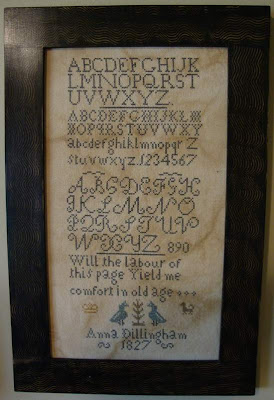 ABCDEFGHIJK
LMNOPQRST
UVWXYZ.
ABCDEFGHIJKLM
NOPQRSTUVWXY
abcdefghijklmnopqr Z
stuvwxyz. 1234567
ABCDEFGH
IJKLMNO
PQRSTUV
WXYZ 890
Will the labour of
this page Yield me
comfort in old age
Anna Dillingham
1827